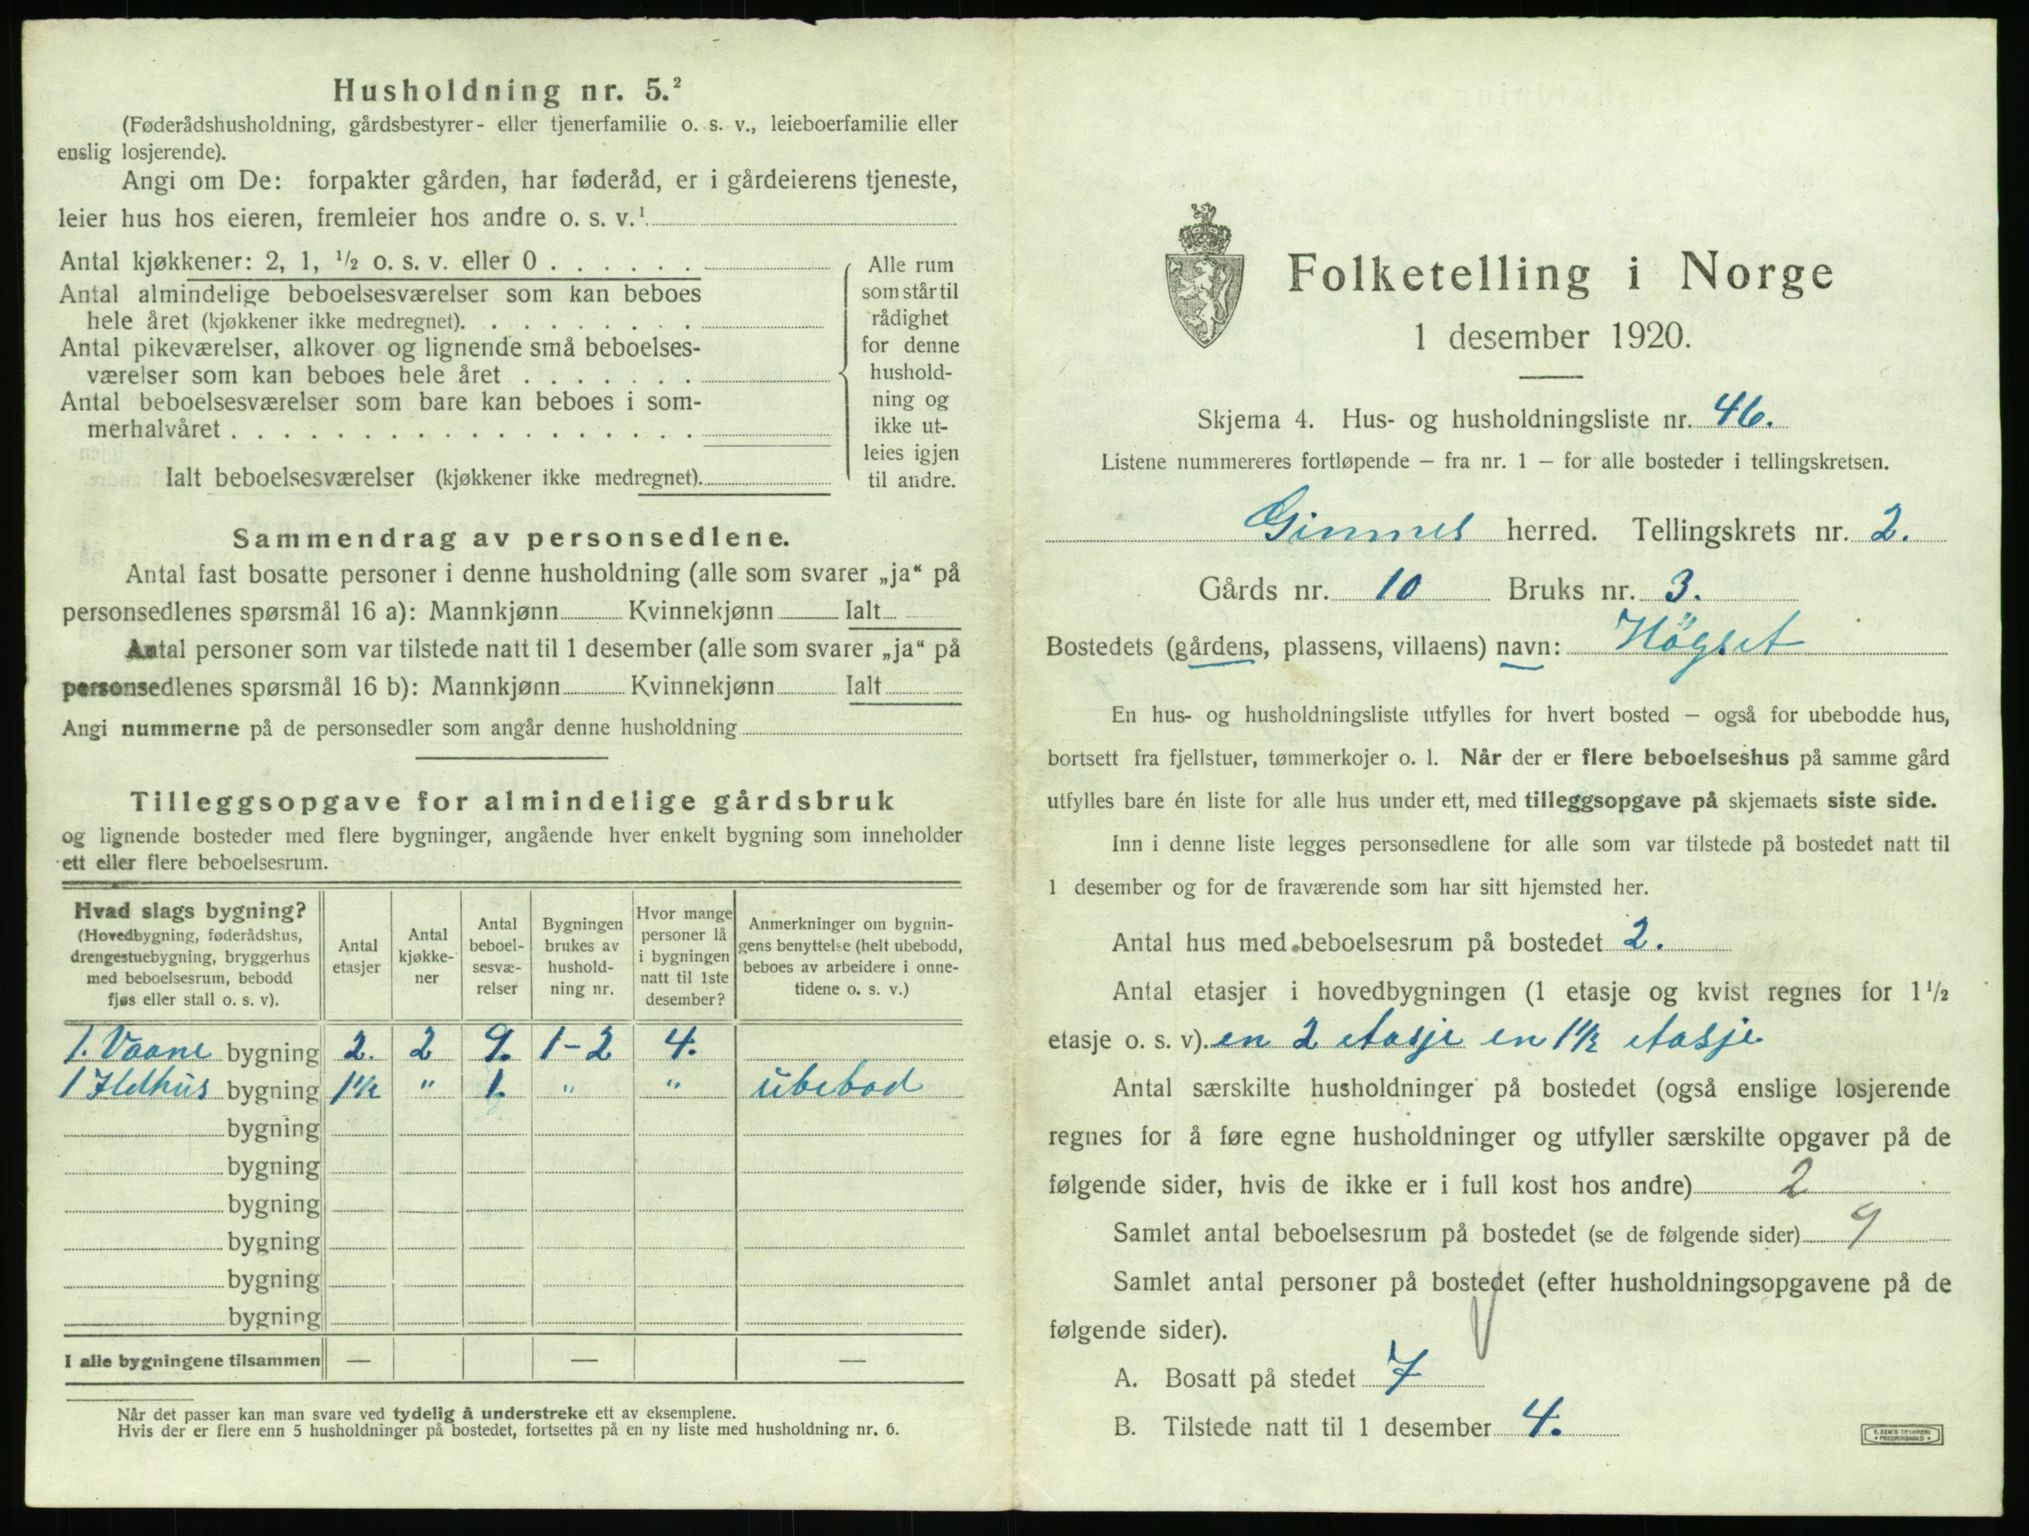 Husholdning nr. 5.²
(Føderådshusholdning, gårdsbestyrer- eller tjenerfamilie o. s. v., leieboerfamilie eller
enslig losjerende).
Angi om De: forpakter gården, har føderåd, er i gårdeierens tjeneste,
leier hus hos eieren, fremleier hos andre o. s. v.¹
Antal kjøkkener: 2, 1, ½ o. s. v. eller 0
Antal almindelige beboelsesværelser som kan beboes
hele året (kjøkkener ikke medregnet).
Antal pikeværelser, alkover og lignende små beboelses-
værelser som kan beboes hele året
Antal beboelsesværelser som bare kan beboes i som-
merhalvåret
Ialt beboelsesværelser (kjøkkener ikke medregnet).
Alle rum
som står til
rådighet
for denne
hushold-
ning og
ikke ut-
leies igjen
til andre.
Sammendrag av personsedlene.
Antal fast bosatte personer i denne husholdning (alle som svarer „ja“ på
personsedlenes spørsmål 16 a): Mannkjønn Kvinnekjønn Ialt
Antal personer som var tilstede natt til 1 desember (alle som svarer „ja“ på
personsedlenes spørsmål 16 b): Mannkjønn Kvinnekjønn Ialt
Angi nummerne på de personsedler som angår denne husholdning
Tilleggsopgave for almindelige gårdsbruk
og lignende bosteder med flere bygninger, angående hver enkelt bygning som inneholder
ett eller flere beboelsesrum.
Hvad slags bygning?
(Hovedbygning, føderådshus,
drengestuebygning, bryggerhus
med beboelsesrum, bebodd
fjøs eller stall o. s. v).
Antal
etasjer
Antal
kjøkke-
ner
Antal
beboel-
sesvæ-
relser
Bygningen
brukes av
hushold-
ning nr.
Hvor mange
personer lå
i bygningen
natt til 1ste
desember?
Anmerkninger om bygnin-
gens benyttelse (helt ubebodd,
beboes av arbeidere i onne-
tidene o. s. v.)
1. Vaane bygning 2. 2 9. 1-2 4.
1 Ildhus bygning 1½ " 1. " " ubebod
bygning
bygning
bygning
bygning
bygning
bygning
I alle bygningene tilsammen — — —
Når det passer kan man svare ved tydelig å understreke ett av eksemplene.
Hvis der er flere enn 5 husholdninger på bostedet, fortsettes på en ny liste med husholdning nr. 6.
Folketelling i Norge
1 desember 1920.
Skjema 4. Hus- og husholdningsliste nr. 46.
Listene nummereres fortløpende – fra nr. 1 – for alle bosteder i tellingskretsen.
Gimnes herred. Tellingskrets nr. 2.
Gårds nr. 10 Bruks nr. 3.
Bostedets (gårdens, plassens, villaens) navn: Högset
En hus- og husholdningsliste utfylles for hvert bosted – også for ubebodde hus,
bortsett fra fjellstuer, tømmerkojer o. l. Når der er flere beboelseshus på samme gård
utfylles bare én liste for alle hus under ett, med tilleggsopgave på skjemaets siste side.
Inn i denne liste legges personsedlene for alle som var tilstede på bostedet natt til
1 desember og for de fraværende som har sitt hjemsted her.
Antal hus med beboelsesrum på bostedet 2.
Antal etasjer i hovedbygningen (1 etasje og kvist regnes for 1½
etasje o. s. v). en 2 etasje en 1½ etasje
Antal særskilte husholdninger på bostedet (også enslige losjerende
regnes for å føre egne husholdninger og utfyller særskilte opgaver på de
følgende sider, hvis de ikke er i full kost hos andre) 2
Samlet antal beboelsesrum på bostedet (se de følgende sider) 9
Samlet antal personer på bostedet (efter husholdningsopgavene på de
følgende sider).
A. Bosatt på stedet 7
B. Tilstede natt til 1 desember 4.
E. SEM'S TRYKKERI
FREDRIKSHALD